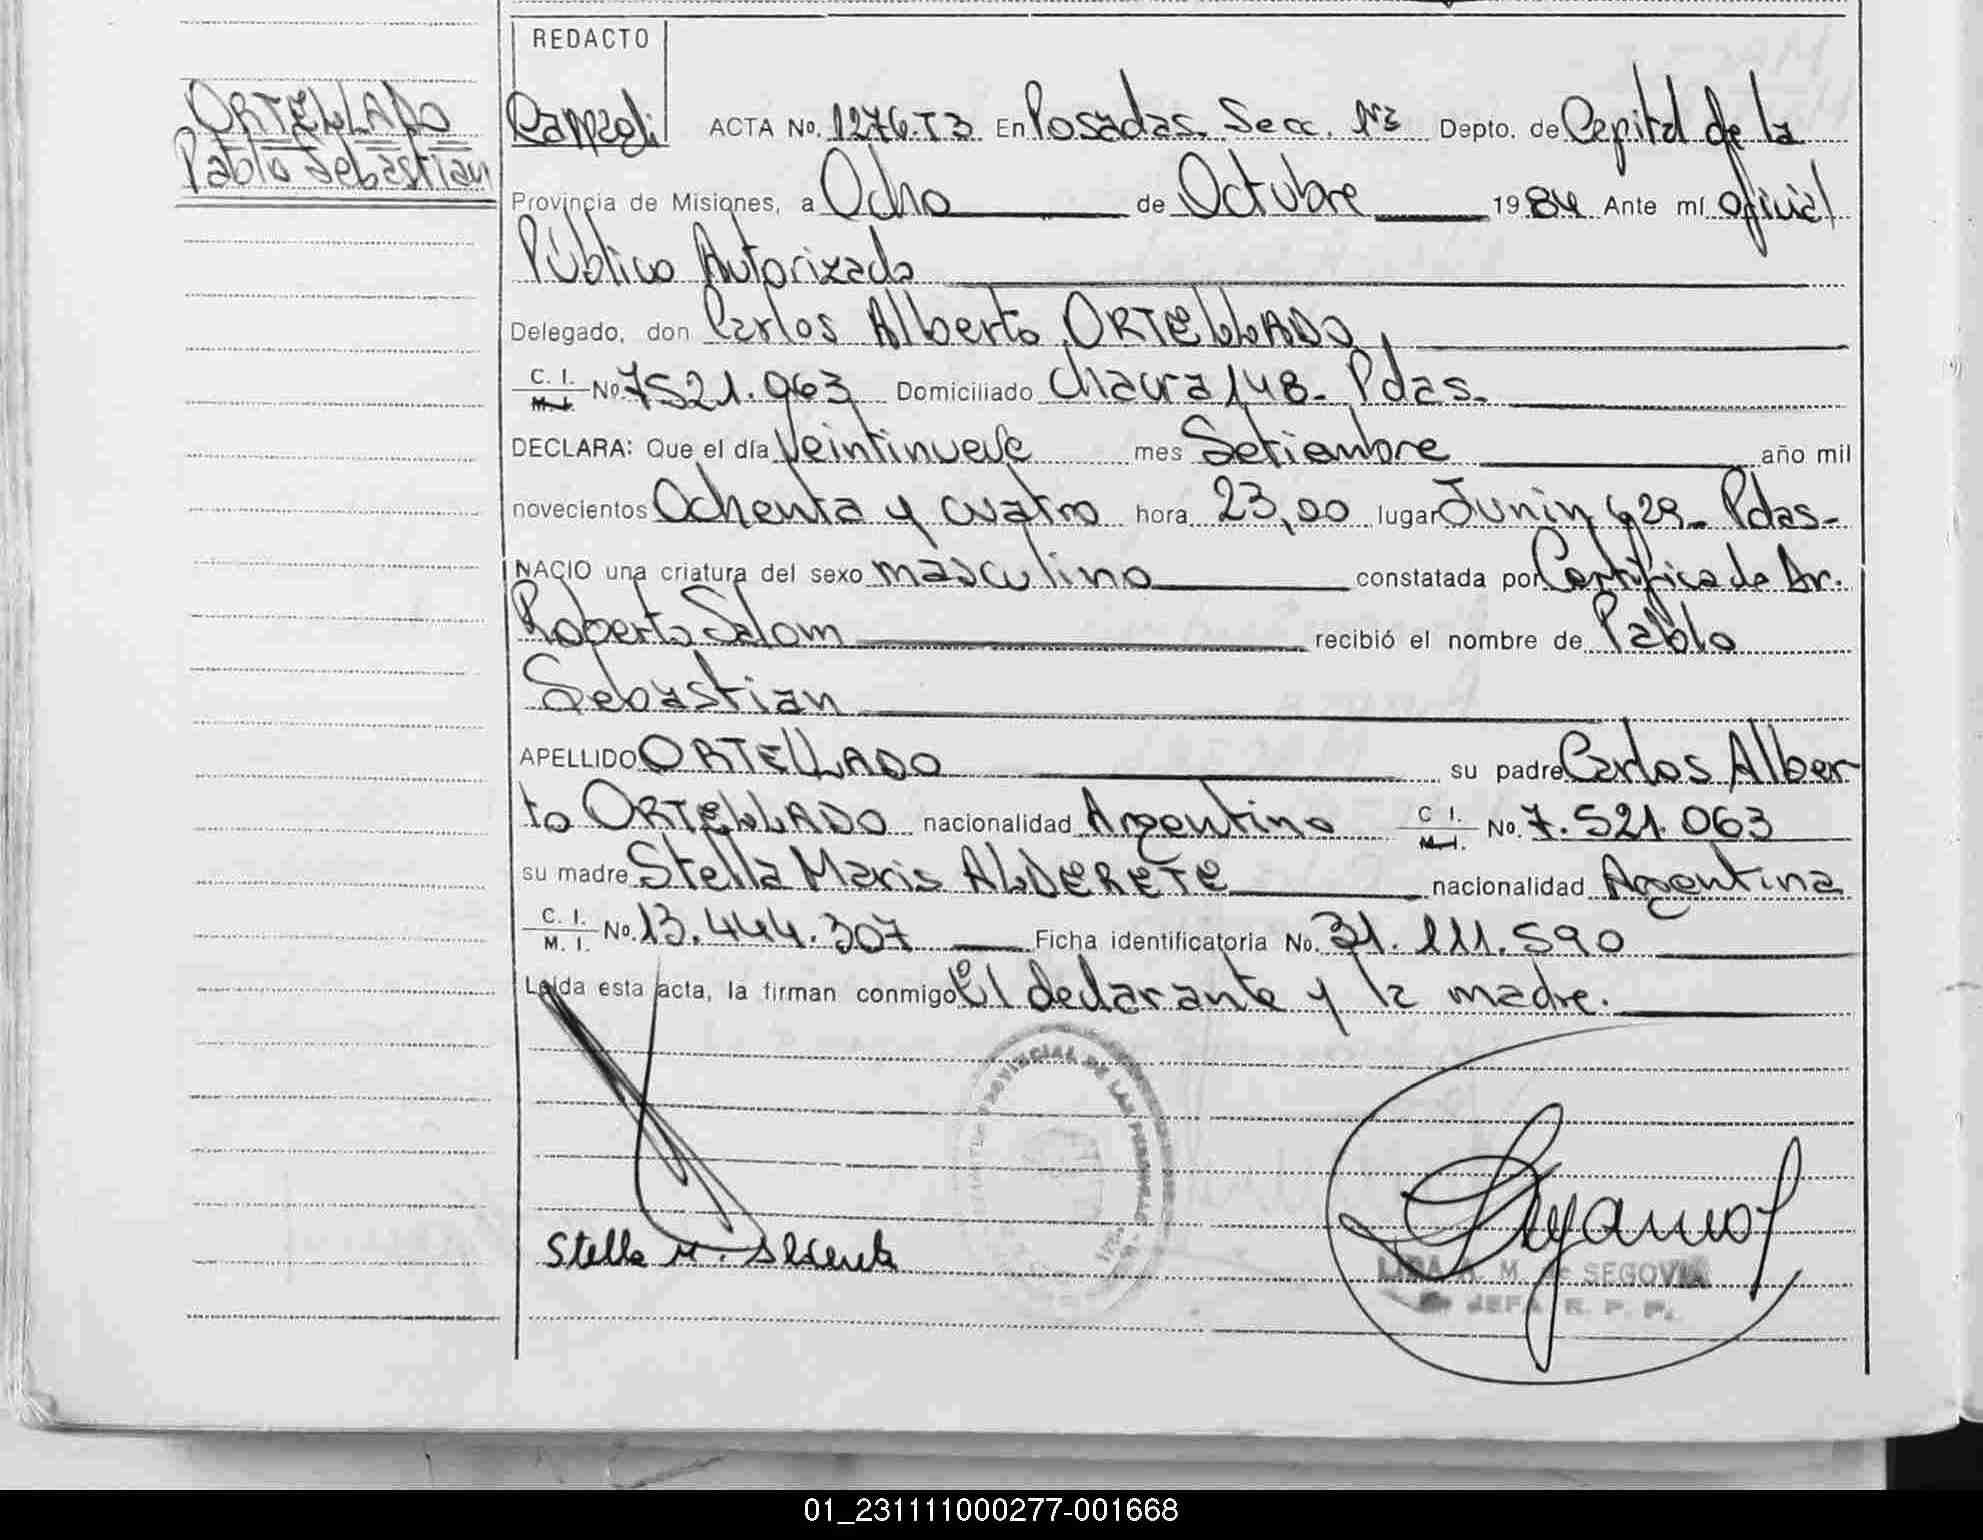 REDACTO
ORTELLADO
Pablo Sebastian
ACTA No. 1276.T3 En Posadas. Secc. Depto. de Capital de la
Provincia de Misiones, a Ocho de Octubre 1984 Ante mí oficial
Público Autorizado
Delegado, don Carlos Alberto ORTELLADO
C. I. M. I. No 7521.063 Domiciliado Chacra 148- Pdas.
DECLARA: Que el día Veintinueve mes Setiembre año mil
novecientos Ochenta y cuatro hora 23,00 lugar Junin 629- Pdas-
NACIO una criatura del sexo masculino constatada por Certificado Dr.
Roberto Salom recibió el nombre de Pablo
Sebastian
APELLIDO ORTELLADO su padre Carlos Alber
to ORTELLADO nacionalidad Argentino C I. M.I. No. 7.521.063
su madre Stella Maris ALDERETE nacionalidad Argentina
C. I. M. I. No. 13.444.307 Ficha identificatoria No. 31.111.590
Leída esta acta, la firman conmigo El declarante y la madre.
PROVINCIAL DE LAS PERSONAS
Stella M. Alderete
M. de SEGOVIA
JEFA R. P. P.
01_231111000277-001668